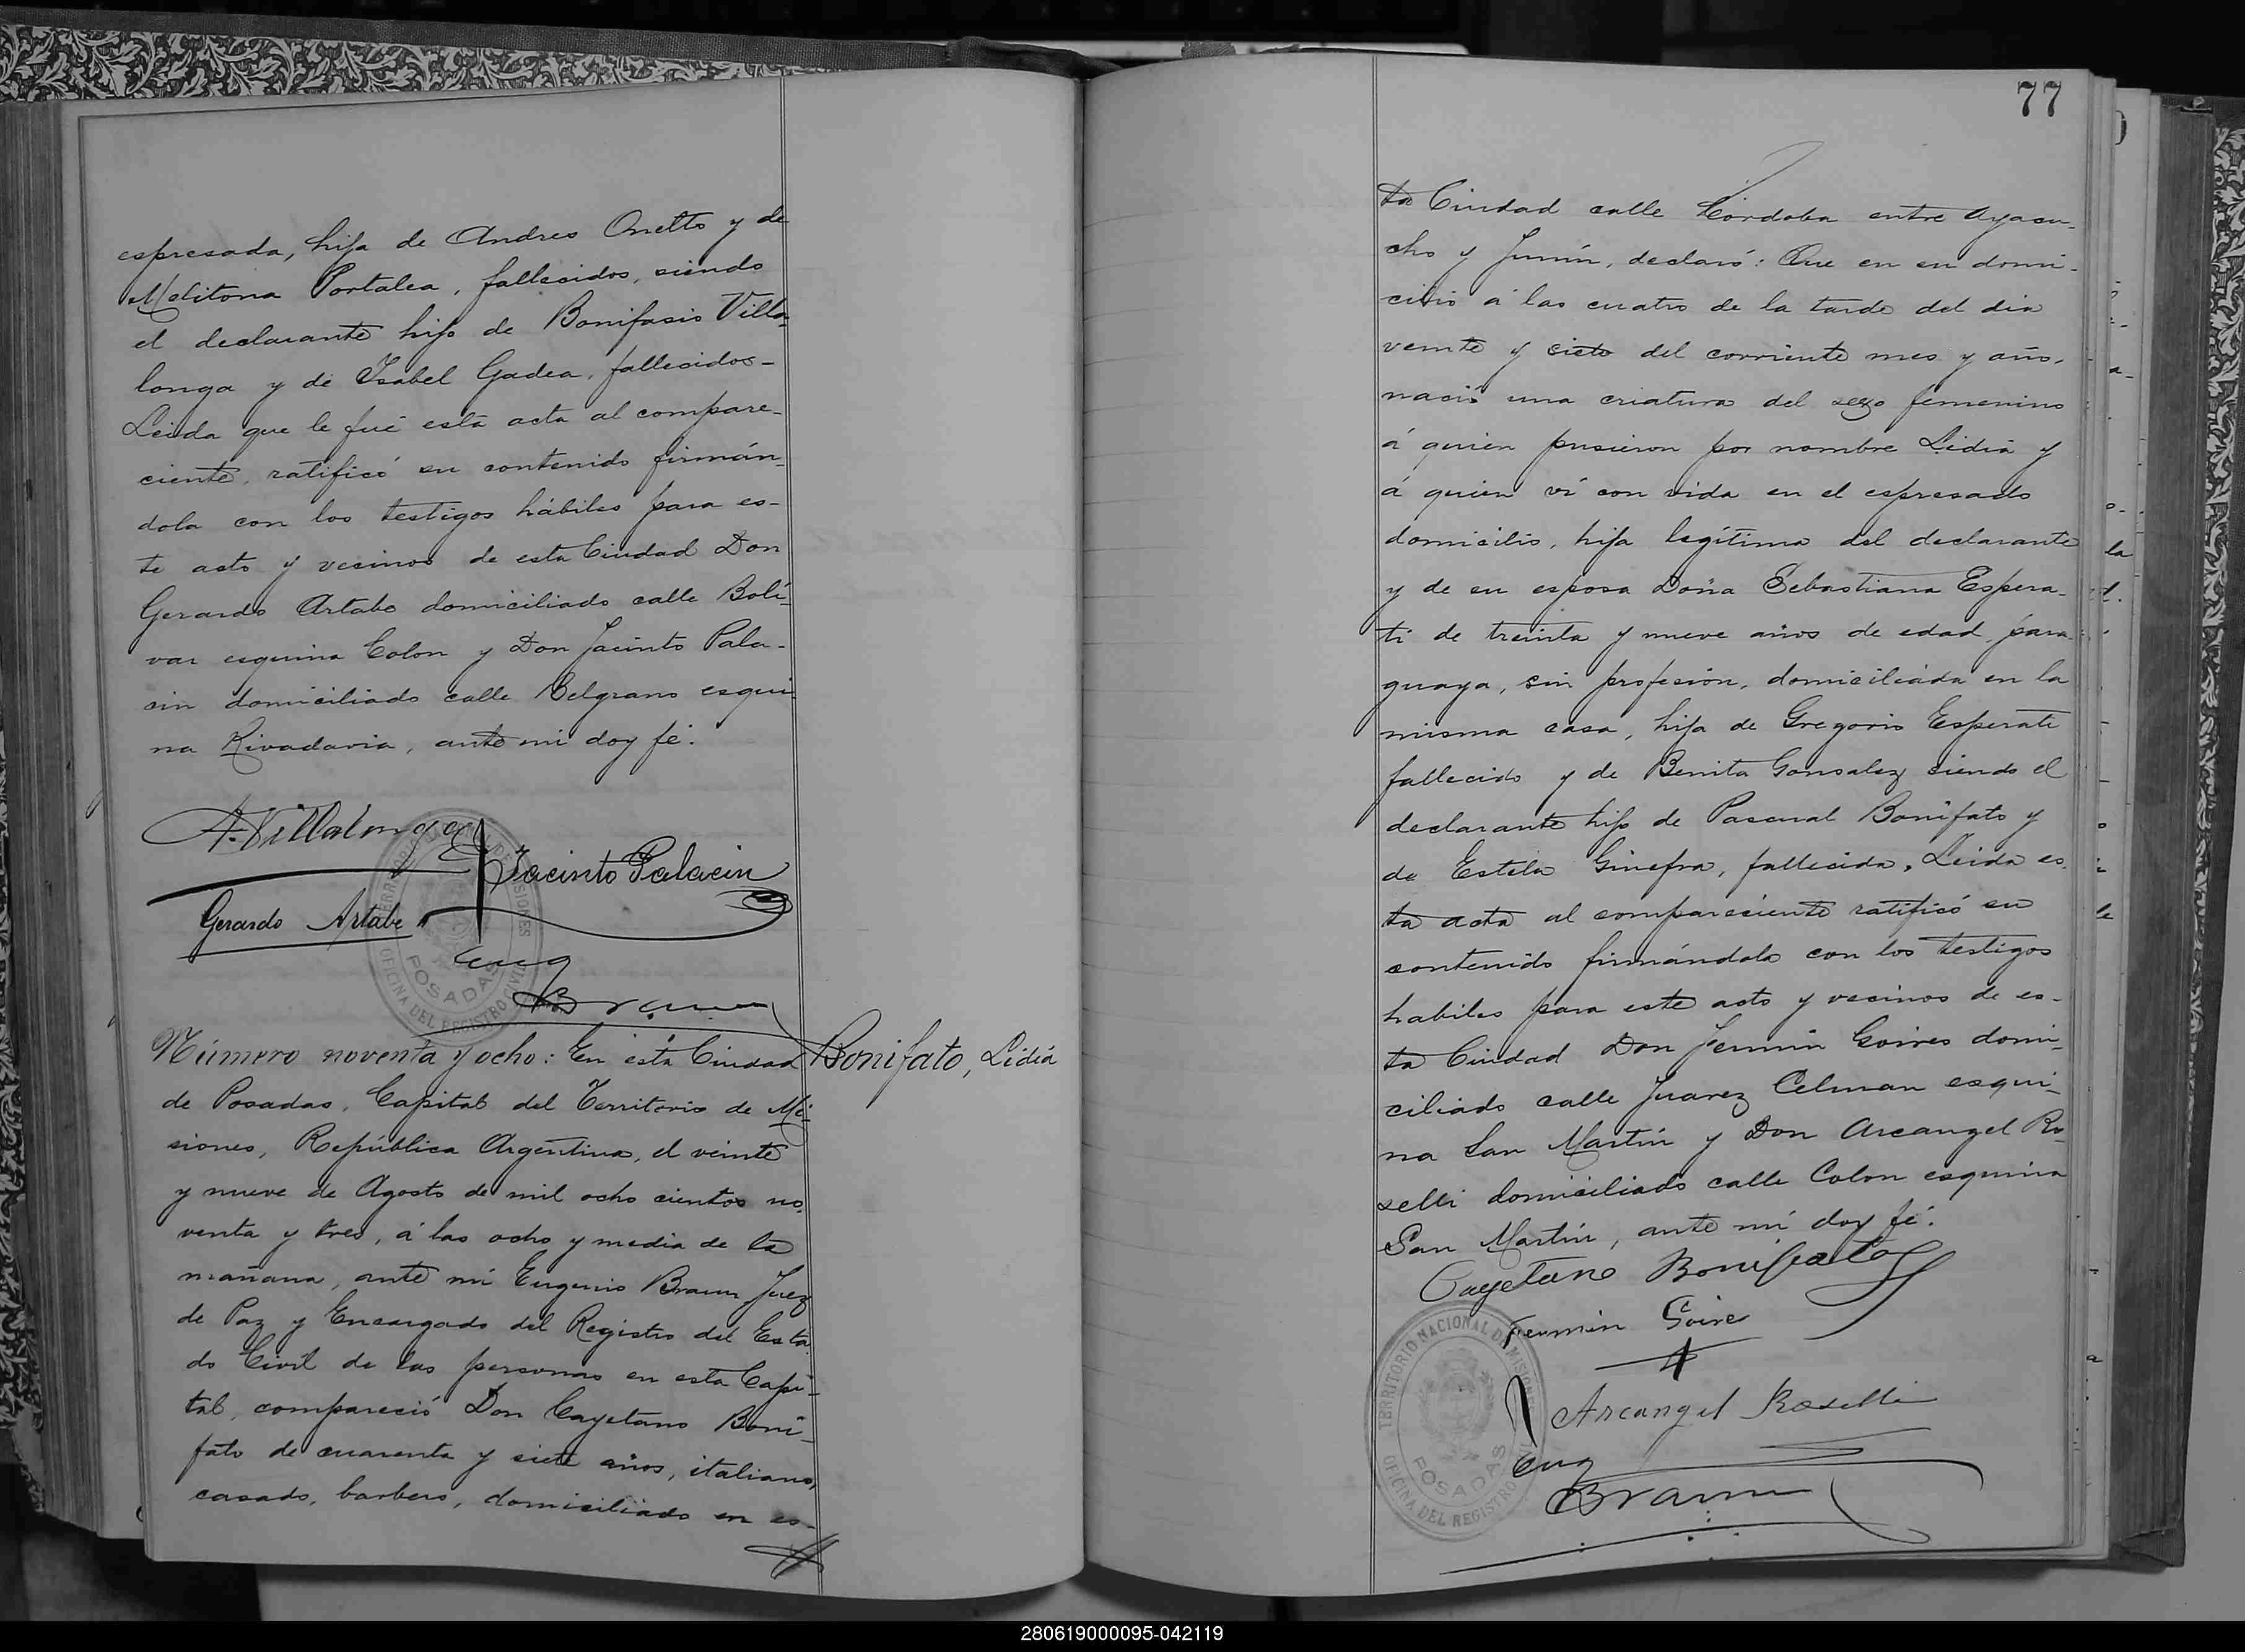 espresada, hija de Andres Onetto y de
Melitona Portalea, fallecidos, siendo
el declarante hijo de Bonifasio Villa-
longa y de Isabel Gadea, fallecidos-
Leida que le fué esta acta al compare-
ciente, ratificó su contenido firmán-
dola con los testigos hábiles para es-
te acto y vecinos de esta Ciudad Don
Gerardo Artabe domiciliado calle Bolí-
var esquina Colon y Don Jacinto Pala-
cin domiciliado calle Belgrano esqui-
na Rivadavia, ante mi doy fé.
A. Villalonga
Jacinto Palacin
Gerardo Artabe
Eug
Braun
TERRITORIO NACIONAL DE MISIONES
POSADAS
OFICINA DEL REGISTRO CIVIL
Número noventa y ocho: En esta Ciudad
Bonifato, Lidia
de Posadas, Capital del Territorio de Mi-
siones, República Argentina, el veinte
y nueve de Agosto de mil ocho cientos no-
venta y tres, á las ocho y media de la
mañana, ante mi Eugenio Braun Juez
de Paz y Encargado del Registro del Esta-
do Civil de las personas en esta Capi-
tal, compareció Don Cayetano Boni-
fato de cuarenta y siete años, italiano,
casado, barbero, domiciliado en es-
77
ta Ciudad calle Córdoba entre Ayacu-
cho y Junín, declaró: Que en su domi-
cilio á las cuatro de la tarde del dia
veinte y siete del corriente mes y año,
nació una criatura del sexo femenino
á quien pusieron por nombre Lidia y
á quien ví con vida en el espresado
domicilio, hija legítima del declarante
y de su esposa Doña Sebastiana Espera-
ti de treinta y nueve años de edad, para-
guaya, sin profesion, domiciliada en la
misma casa, hija de Gregorio Esperati
fallecido y de Benita Gonsalez siendo el
declarante hijo de Pascual Bonifato y
de Estela Ginefra, fallecida. Leida es-
ta acta al compareciente ratificó su
contenido firmándola con los testigos
habiles para este acto y vecinos de es-
ta Ciudad Don Fermin Goires domi-
ciliado calle Juarez Celman esqui-
na San Martín y Don Arcangel Ro-
selli domiciliado calle Colon esquina
San Martín, ante mí doy fé.
Cayetano Bonifato
Fermin Goire
Arcangel Roselli
Eug
Braun
TERRITORIO NACIONAL DE MISIONES
POSADAS
OFICINA DEL REGISTRO CIVIL
280619000095-042119